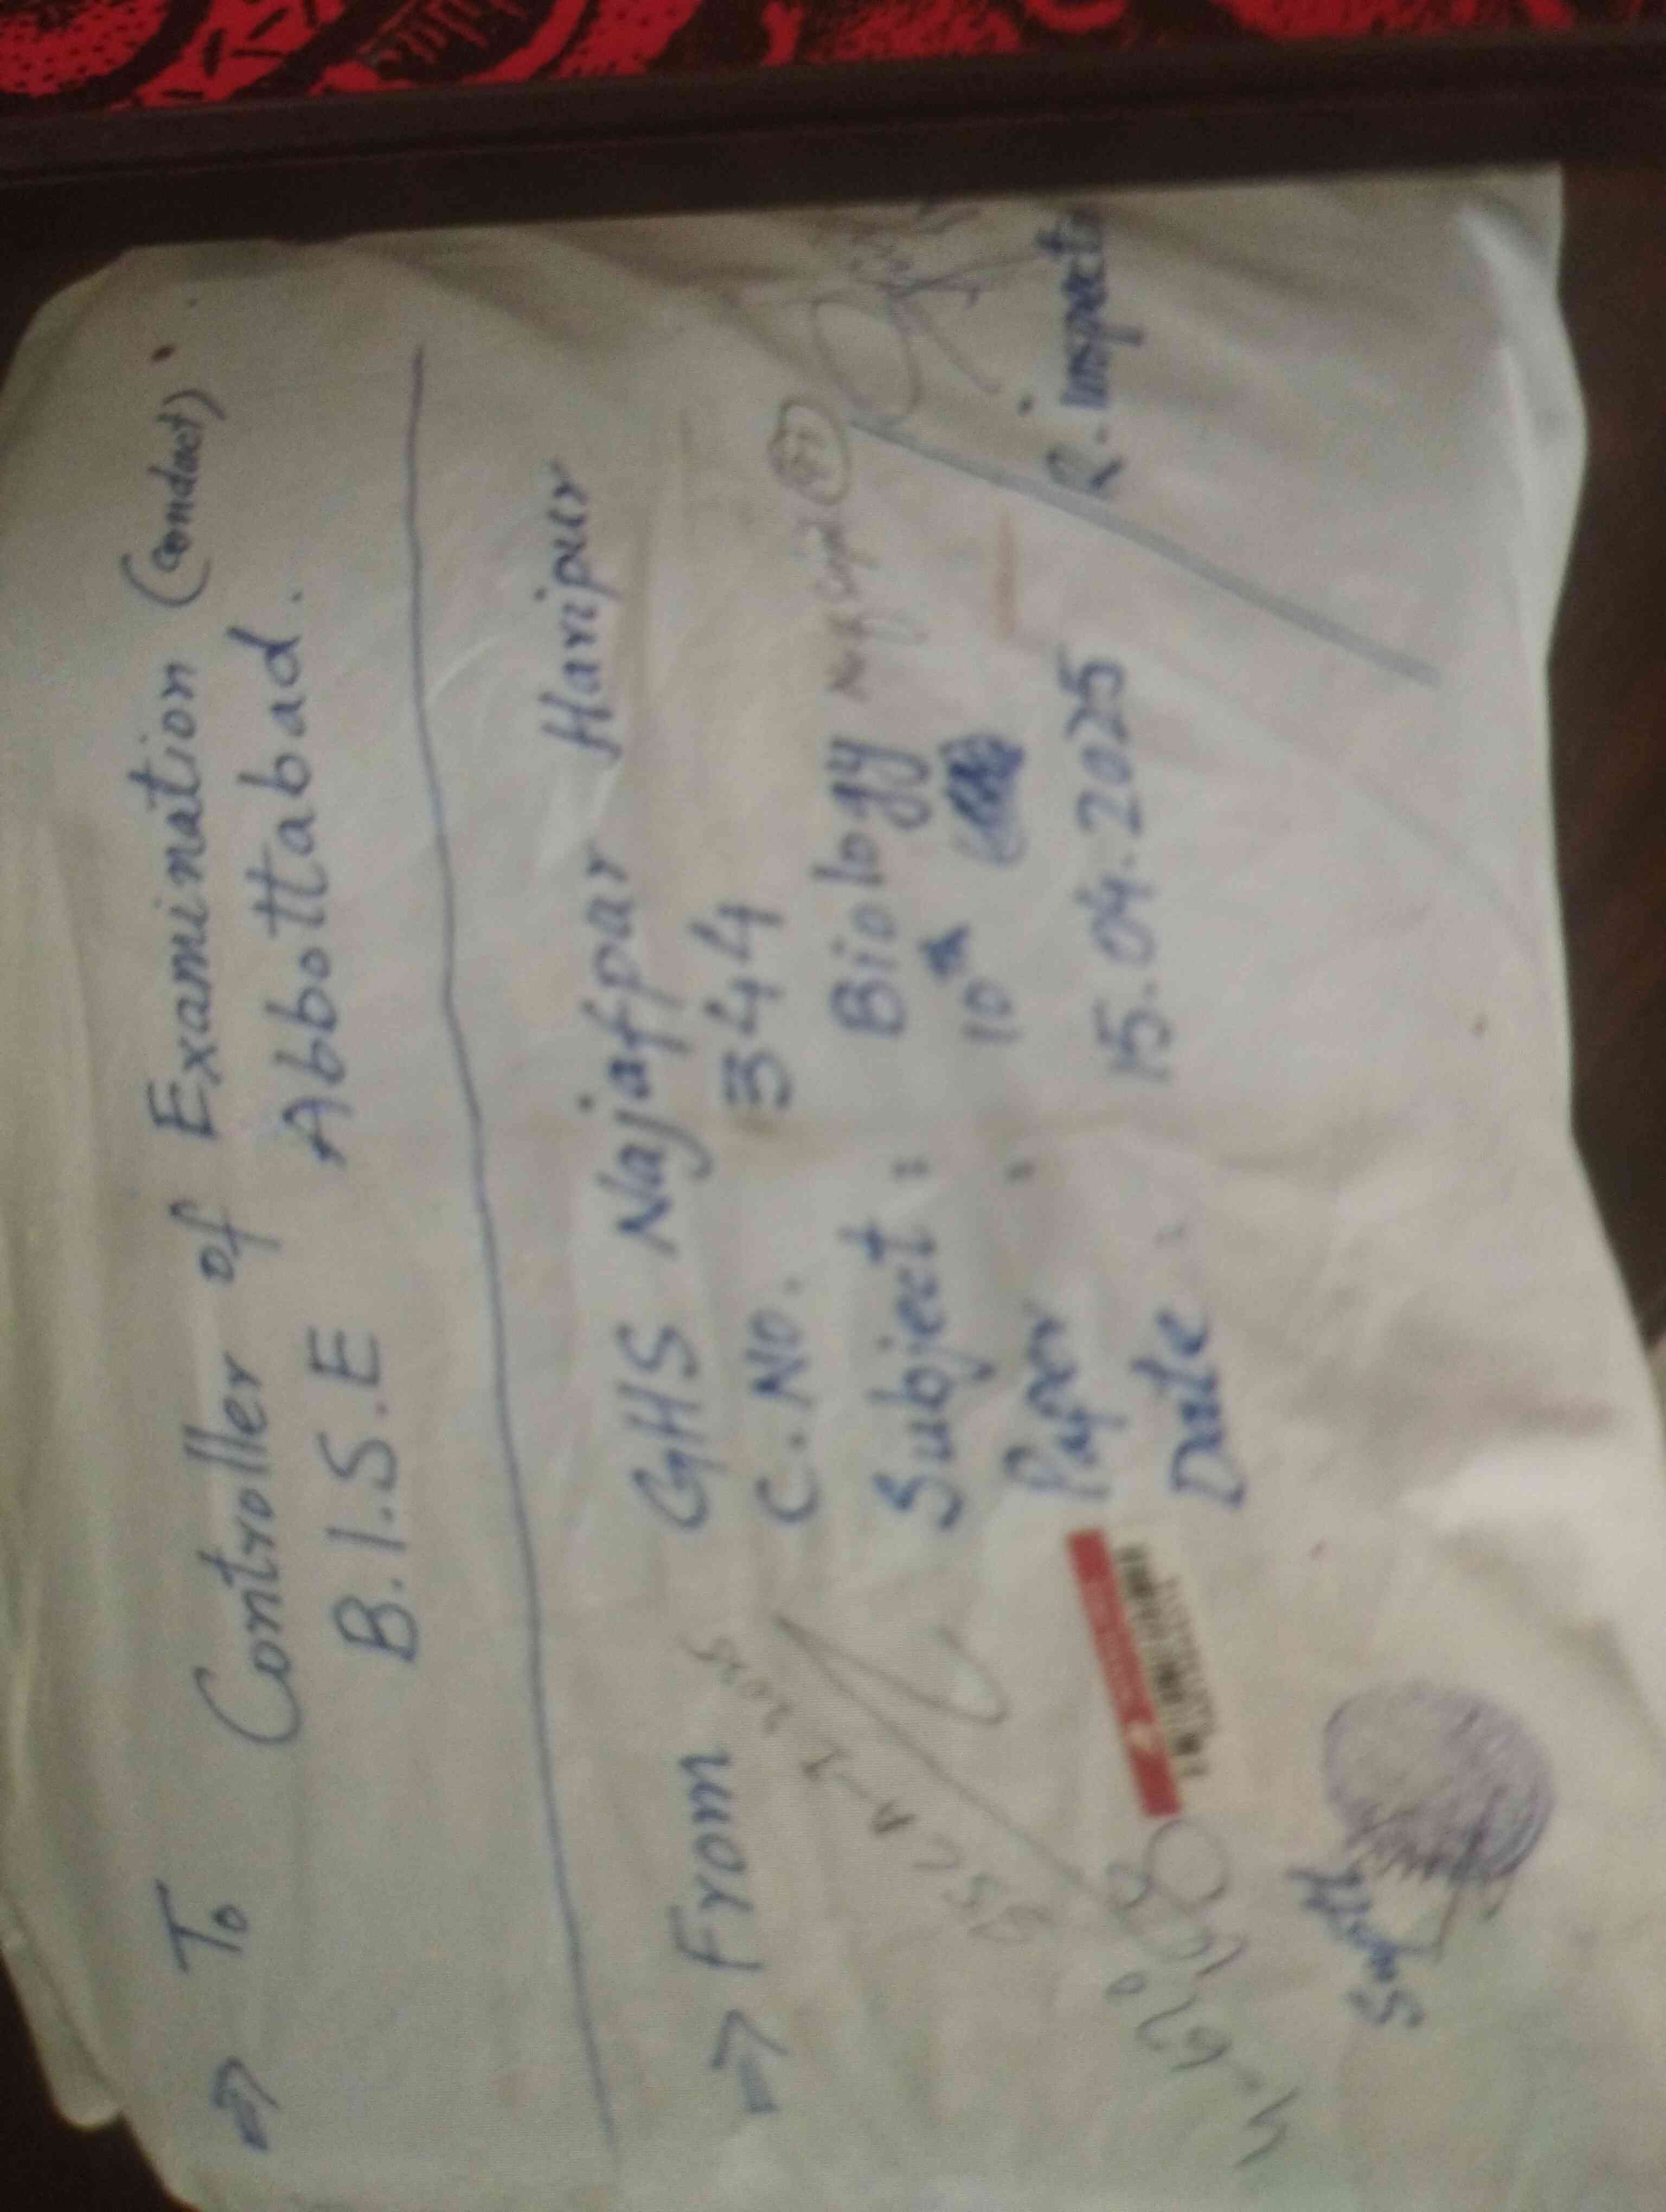 ⇒ To Controller of Examination (conduct).
B.I.S.E Abbottabad.
⇒ From GHS Najafpur Haripur
C.No. 344
Subject : Biology
Paper : 10th
Date : 15.04.2025
R. inspector
Supdt